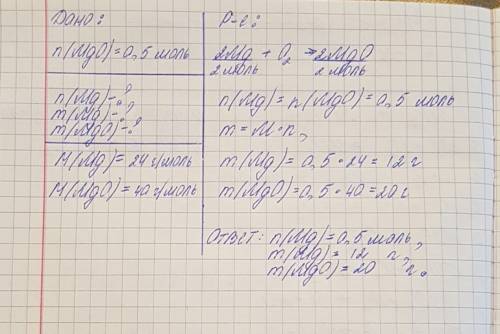 Дано:
n(MgO)=0,5 моль
n(Mg)-?
m(Mg)-?
m(MgO)-?
M(Mg)=24 г/моль
M(MgO)=40 г/моль
Р-е:
2Mg + O2 → 2MgO
2 моль 2 моль
n(Mg)=n(MgO)=0,5 моль
m=M·n,
m(Mg)=0,5·24=12 г
m(MgO)=0,5·40=20 г
Ответ: n(Mg)=0,5 моль,
m(Mg)=12 г,
m(MgO)=20 г.